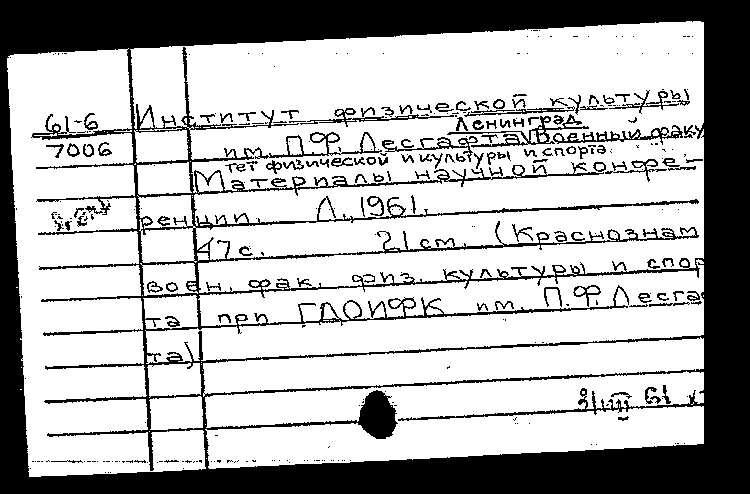 61-6 Институт физической культуры
Ленинград
7006 им. П.Ф. Лесгафта Военный факу
тет физической и культуры и спорта.
Материалы научной конфе-
ренции. Л., 1961.
47с. 21см. (Краснознам
воен. фак. физ. культуры и спор
та при ГДОИФК им. П.Ф. Лесга
та)
61